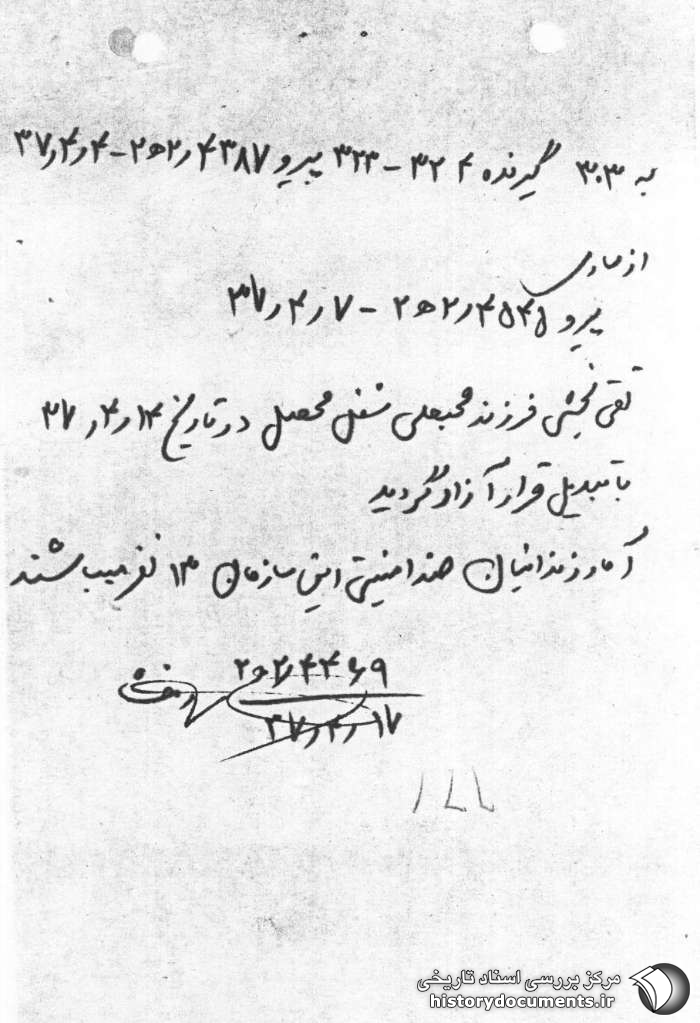 به ۳۰۳ گیرنده ۳۲۴ - ۳۲۳ پیرو ۴۳۸۷ر۲ه۲-۴ر۴ر۳۷
از ساری
پیرو ۴۵۴۵ر۲ه۲ - ۷ر۴ر۳۷
تقی بخشی فرزند محبعلی شغل محصل در تاریخ ۱۴ر۴ر۳۷
با تبدیل قرار آزاد گردید
آمار زندانیان ضد امنیتی این سازمان ۱۳ نفر میباشند
۲ه۲ر۴۴۶۹
۱۷ر۴ر۳۷
مرکز بررسی اسناد تاریخی
historydocuments.ir